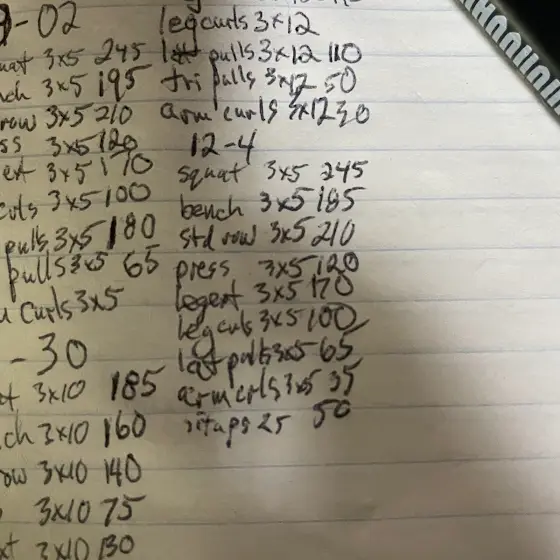 -02
uat 3x5 245
nch 3x5 195
row 3x5 210
ss 3x5 120
ext 3x5 170
curls 3x5 100
pulls 3x5 180
pulls 3x5 65
curls 3x5
-30
at 3x10 185
ch 3x10 160
ow 3x10 140
3x10 75
xt 3x10 130
legcurls 3x12
lat pulls 3x12 110
tri pulls 3x12 50
arm curls 3x12 30
12-4
squat 3x5 245
bench 3x5 185
std row 3x5 210
press 3x5 120
legext 3x5 170
legcurls 3x5 100
lat pulls 3x5 65
arm crls 3x5 35
situps 25 50